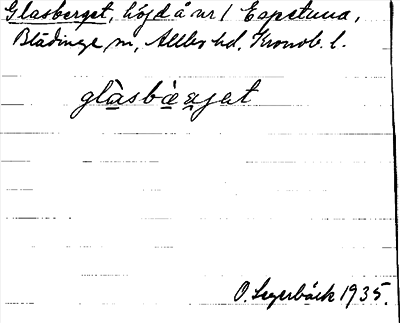 Glasberget, höjd å nr 1 Espetuna,
Blädinge sn, Allbo hd, Kronob. l.
glàsbæ̀rjət
O. Segerbäck 1935.